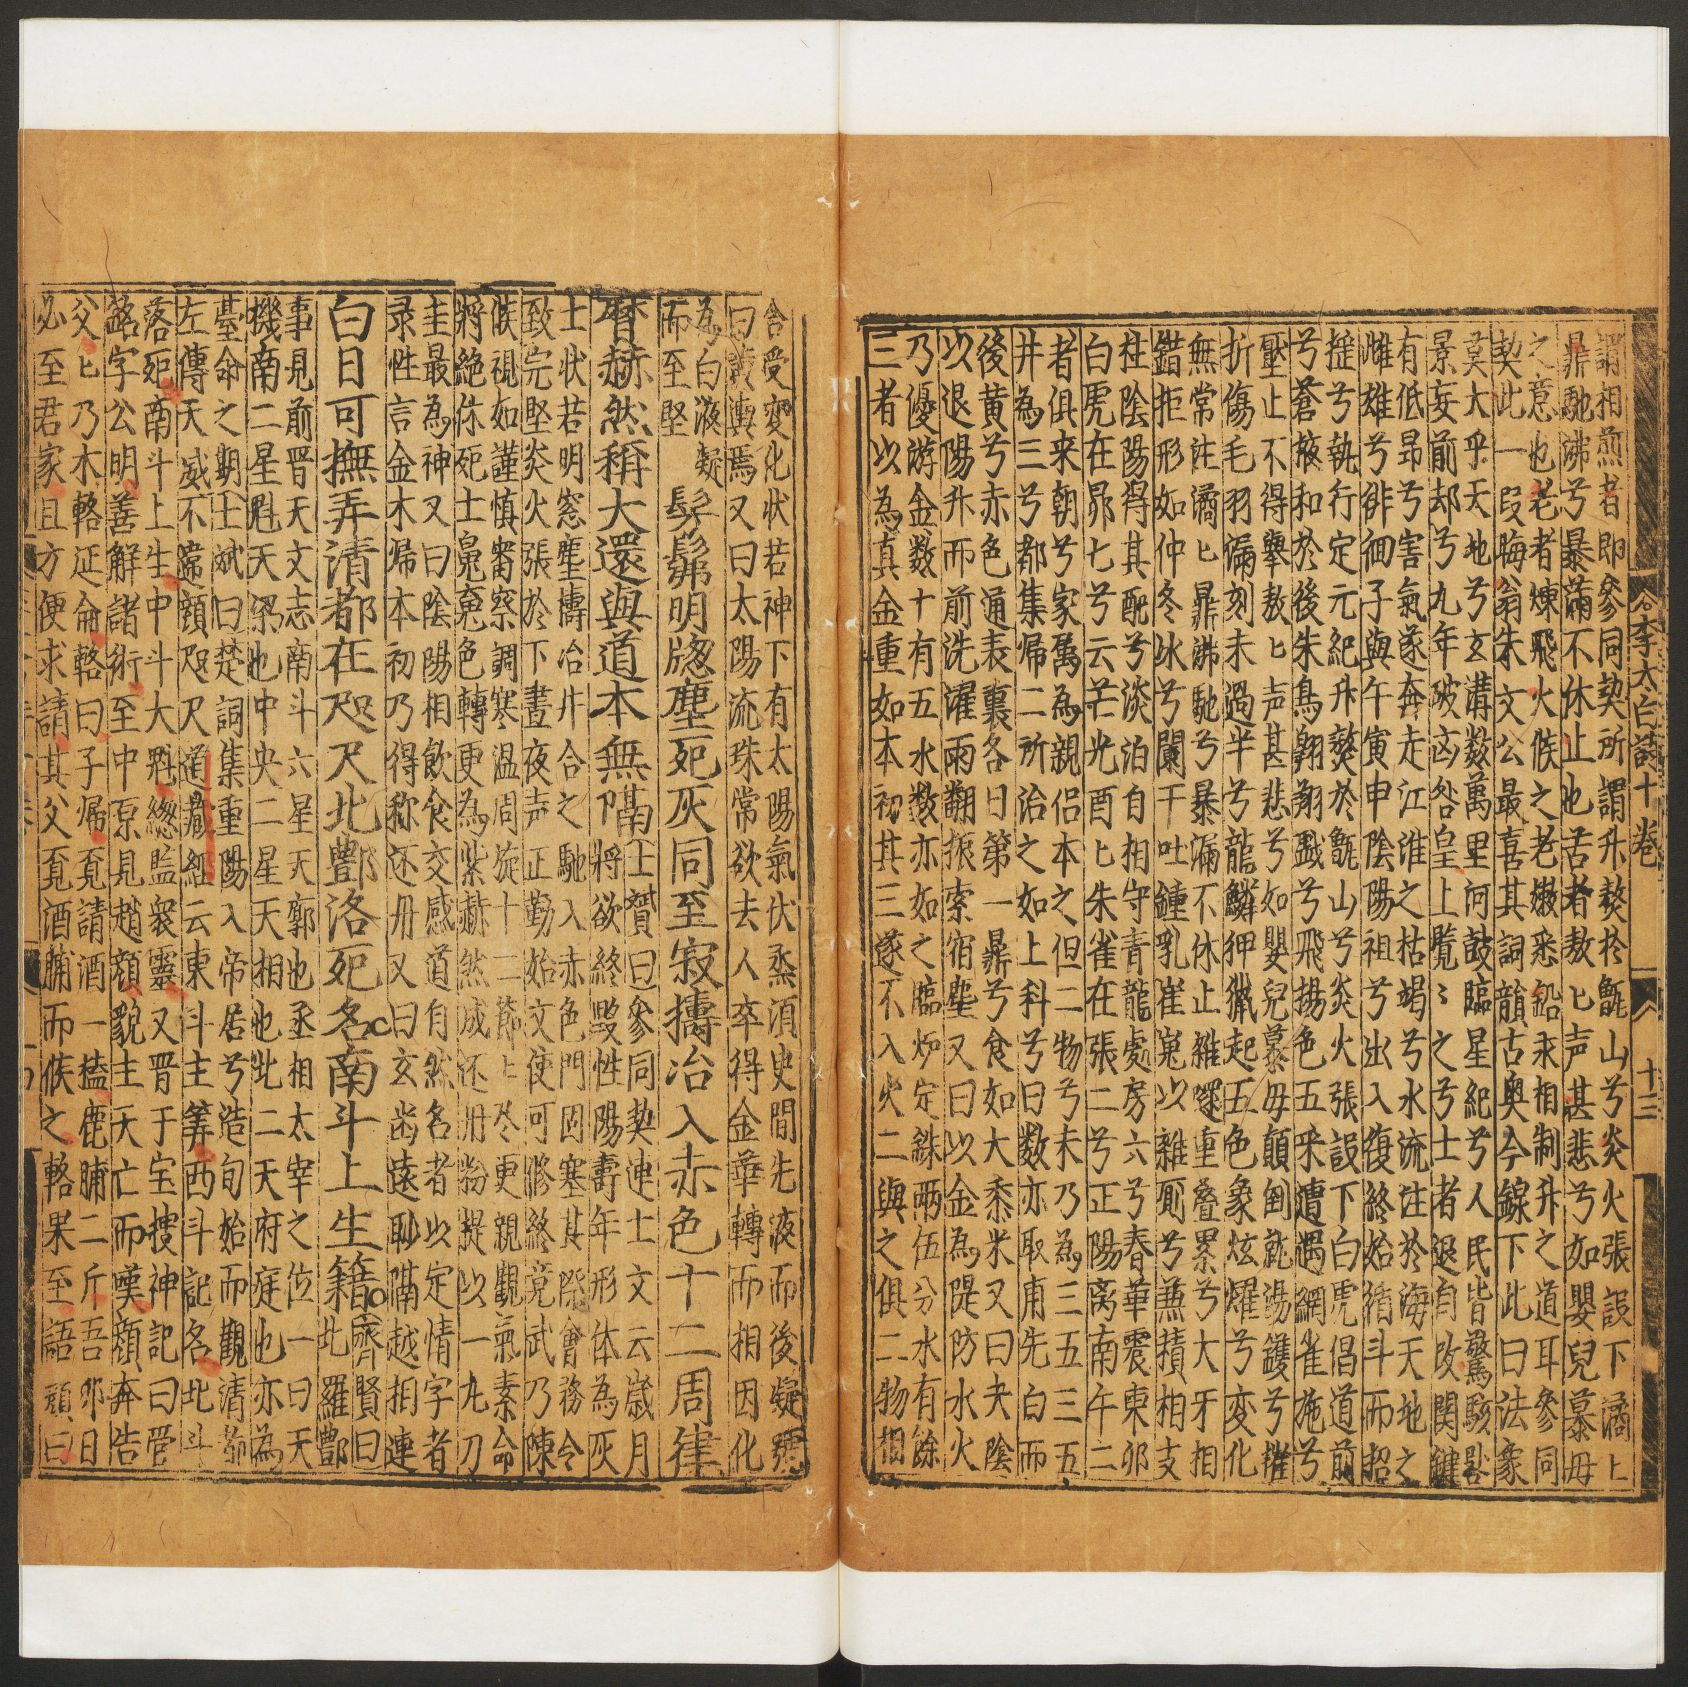 李太白詩十卷 十三
謂相煎者即參同契所謂升熬於甑山兮炎火張設下潏上
鼎馳沸兮暴滿不休止也苦者熬匕声甚悲兮如嬰兒慕母
之意也老者煉飛火候之老嫩悉鉛汞相制升之道耳參同
契此一段晦翁朱文公最喜其詞韻古奥今錄下此曰法象
莫大乎天地兮玄溝数萬里河鼓臨星紀兮人民皆驚駭晷
景妄前却兮九年破凶咎皇上覽〻之兮士者退自改関鍵
有低昻兮害氣遂奔走江淮之枯竭兮水流注於海天地之
雌雄兮徘徊子與午寅申陰陽祖兮出入復終始循斗而招
摇兮執行定元紀升熬於甑山兮炎火張設下白虎倡道前
兮蒼液和於後朱鳥翱翔戱兮飛揚色五采遭遇網雀施兮
壓止不得舉熬匕声甚悲兮如嬰兒慕母顛倒就湯鑊兮摧
折傷毛羽漏刻未過半兮龍鱗狎獵起五色象炫燿兮变化
無常注潏匕鼎沸馳兮暴漏不休止雜遝重叠累兮犬牙相
錯拒形如仲冬氷兮闌干吐鍾乳崔嵬以雜厠兮兼積相支
柱陰陽得其配兮淡泊自相守青龍處房六兮春華震東卯
白虎在昴七兮云芒光酉匕朱雀在張二兮正陽离南午二
者俱来朝兮家萬為親侣本之但二物兮未乃為三五三五
井為三兮都集帰二所治之如上科兮日数亦取甫先白而
後黄兮赤色通表裏各曰第一鼎兮食如大黍米又曰夫陰
以退陽升而前洗濯雨翻振索宿塵又曰以金為隄防水火
乃優游金数十有五水数亦如之臨炉定銖兩伍分水有餘
三者以為真金重如本初其三遂不入火二與之俱二物相
含受变化状若神下有太陽氣伏烝湏臾間先液而後凝號
曰黄輿焉又曰太陽流珠常欲去人卒得金華轉而相因化
為白液凝
而至堅 髣髴明牕塵死灰同至寂擣冶入赤色十二周律
暦赫然稱大還與道本無隔
士贇曰參同契連士文云歳月
將欲終毀性陽壽年形体為灰
士状若明窓塵擣冶并合之馳入赤色門固塞其際會務令
致完堅炎火張於下晝夜声正勤始文使可修終竟武乃陳
候視如謹慎審察調寒温周旋十二節匕尽更親觀氣索命
將絶休死士䰟䰟色轉更為紫赫然成还丹粉提以一丸刀
圭最為神又曰陰陽相飲食交感道自然名者以定情字者
录性言金木帰本初乃得称还丹又曰玄凾遠眇隔越相連
白日可撫弄清都在咫尺北酆洛死名南斗上生籍
齊賢曰
此羅酆
事見前晋天文志南斗六星天廓也丞相太宰之位一曰天
機南二星魁天梁也中央二星天相也北二天府庭也亦為
䑓命之期士斌曰楚詞集重陽入帝居兮造旬始而觀清都
左傳天威不違顔咫尺道藏經云東斗主筭西斗記名北斗
落死南斗上生中斗大魁總監衆靈又晋于宝搜神記曰管
輅字公明善解諸術至中原見趙顔貌主夭亡而嘆顔奔告
父匕乃木輅延命輅曰子帰覔請酒一榼鹿脯二斤吾卯日
必至君家且方便求請其父覔酒脯而候之輅果至語顔曰